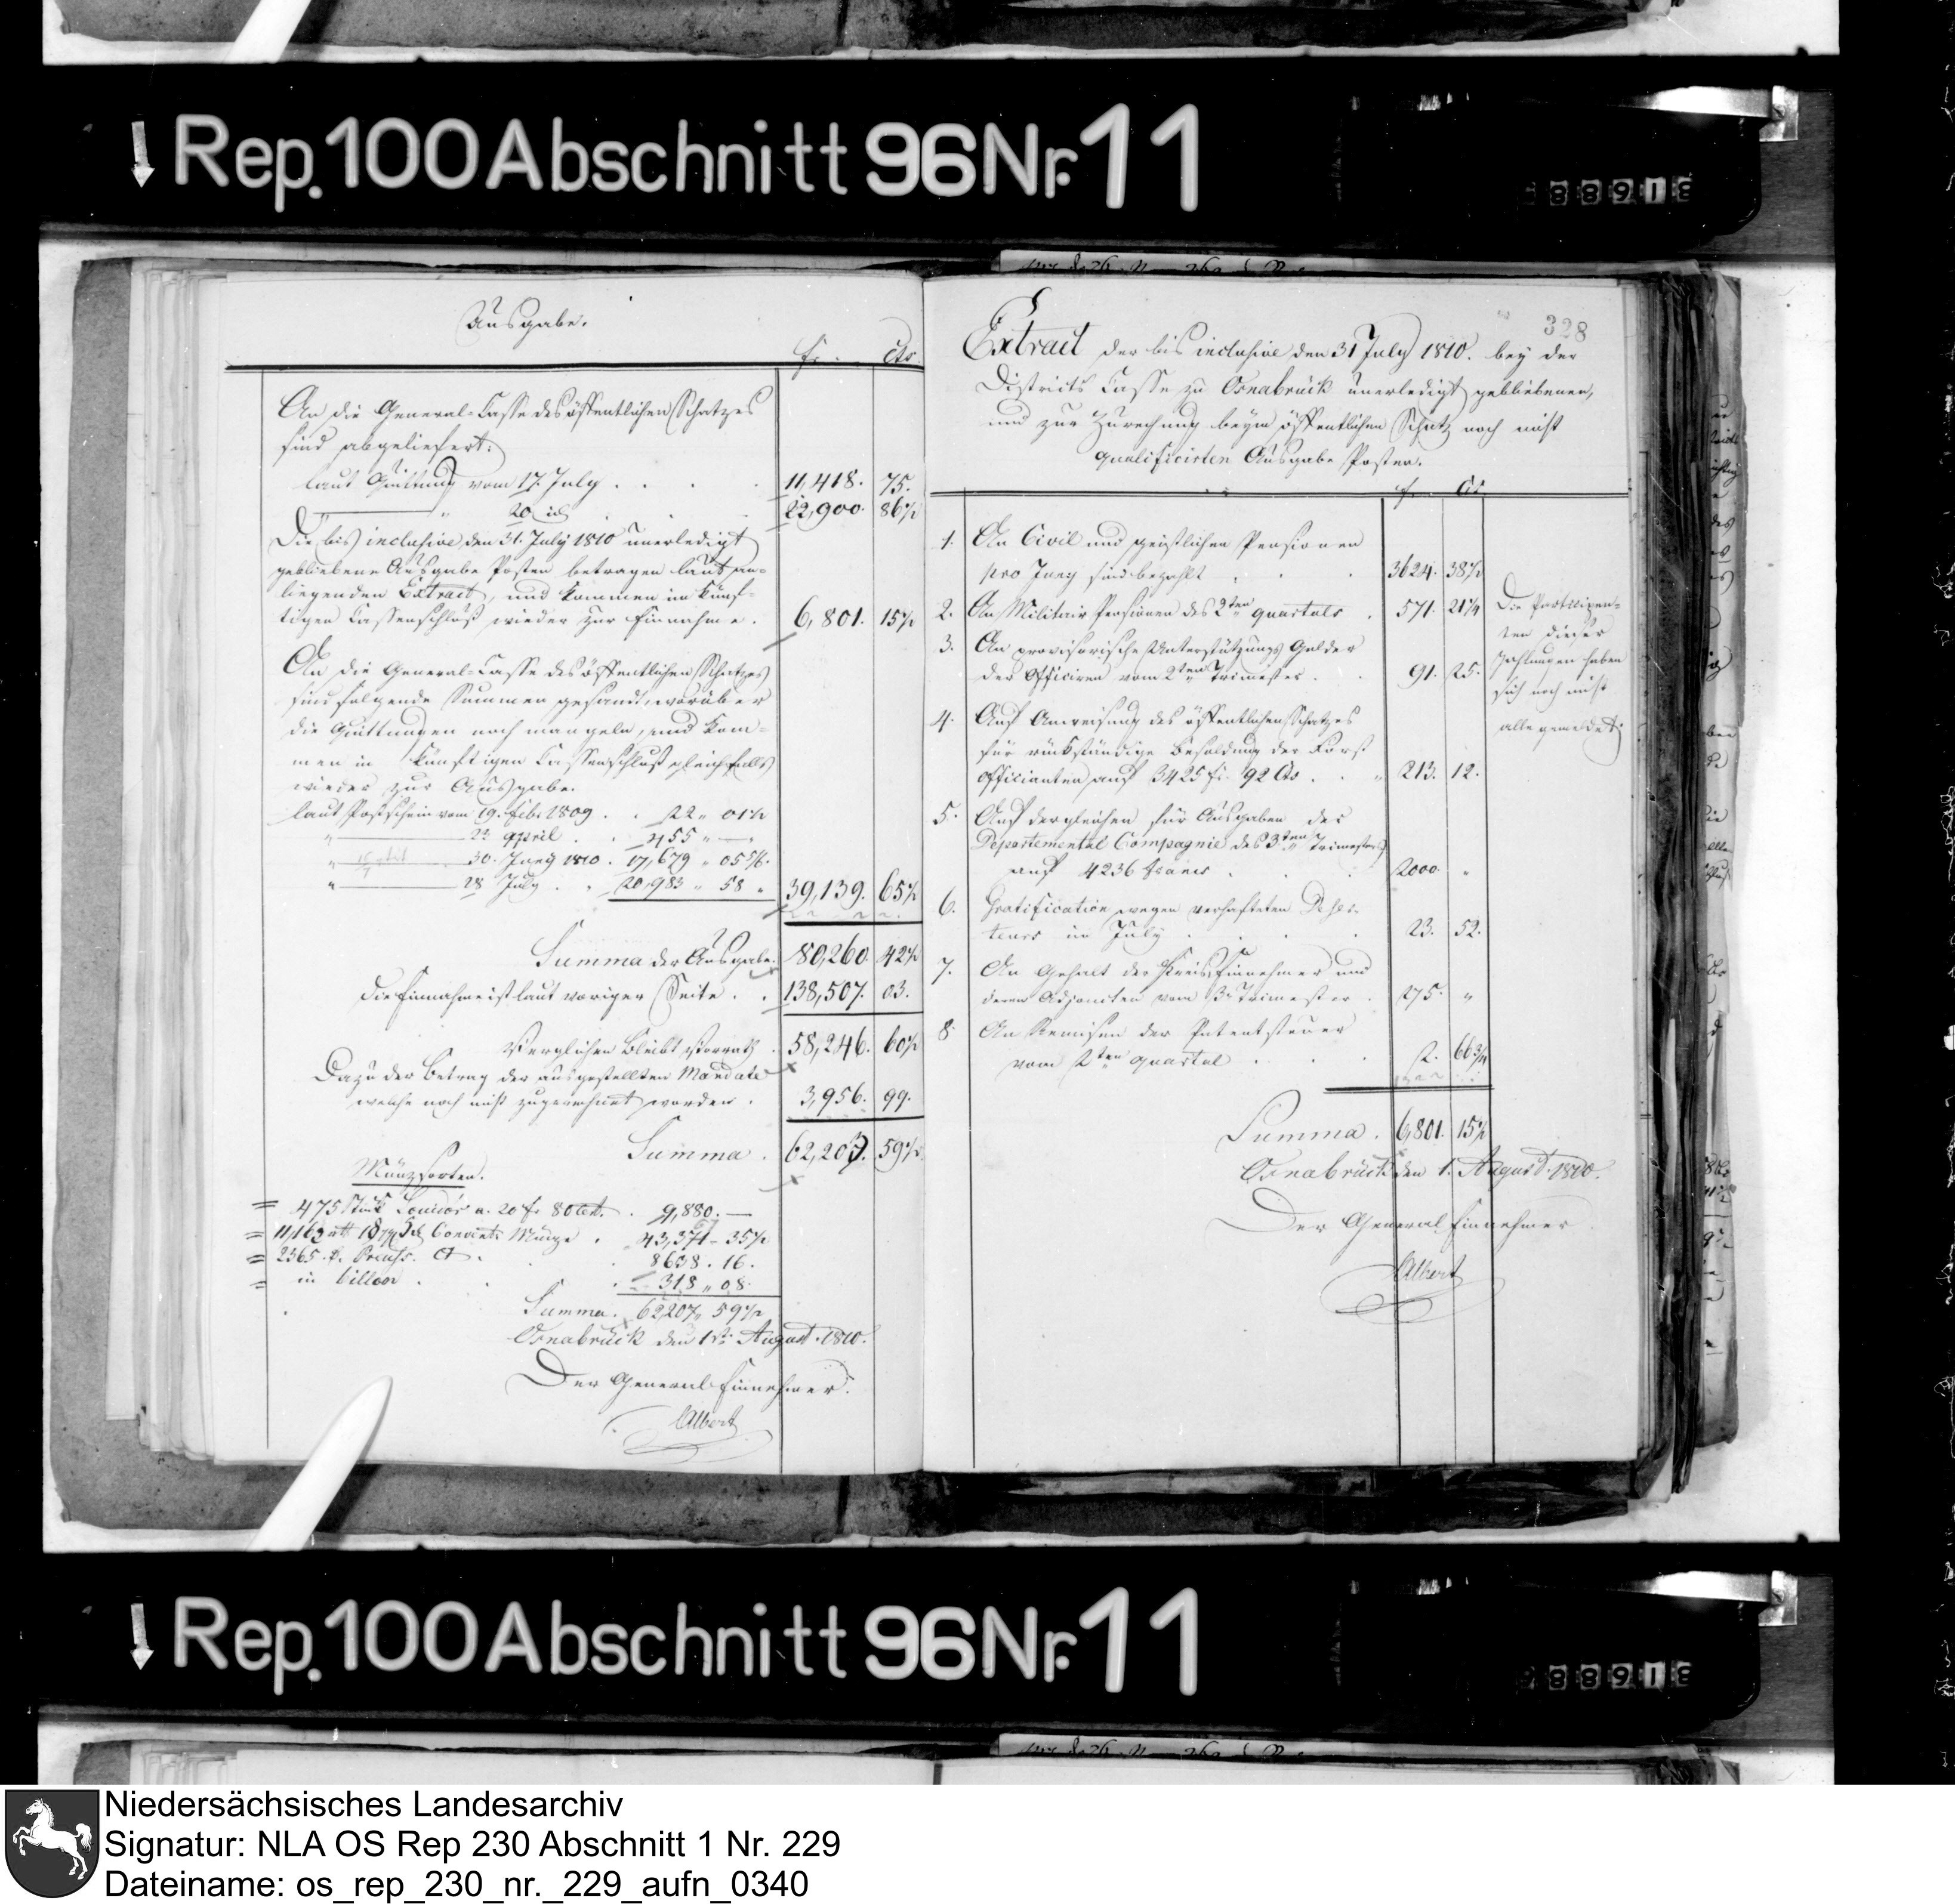 Rep. 100 Abschnitt 96 Nr. 11
Ausgabe.
fr. Cts.
An die General-Casse des öffentlichen Schatzes
sind abgeliefert:
laut Quittung vom 17. July . . . 11,418. 75.
" 20 id. 22,900. 86½
Die bis inclusive den 31. July 1810 unerledigt
gebliebene Ausgabe Posten betragen laut an-
liegenden Extract, und kommen im künf-
tigen Cassenschluß wieder zur Einnahme. 6,801. 15½
An die General-Casse des öffentlichen Schatzes
sind folgende Summen gesandt, worüber
die Quittungen noch mangeln, und kom-
men in künftigen Cassenschluß gleichfalls
wieder zur Ausgabe.
laut Postschein vom 19. Feb. 1809 . . 22 " 01½
" april . 455 " —
" 30. Juny 1810 . 17,679 " 05 5/6.
" 28 July . . 20,983 " 58 " 39,139. 65½
Summa der Ausgabe. 80,260. 42½
Die Einnahme ist laut voriger Seite . . 138,507. 03.
Verglichen bleibt Vorrath . 58,246. 60½
Dazu der Betrag der ausgestellten Mandate
welche noch nicht zugerechnet worden . 3,956. 99.
Summa . 62,207. 59½.
Münzsorten.
475 Stück Louisd'or a. 20 fr 80 Cent. . 9,880. —
Convents Münze . 43,371 - 35½
2365 Preuss. Ct . 8638 . 16.
in billon . . . 318 " 08.
Summa. 62207 " 59½
Osnabrück den 1st. August. 1810.
Der General-Einnehmer.
Albert
328
Extrait der bis inclusive den 31 July 1810. bey der
Districts Casse zu Osnabrück unerledigt gebliebenen,
und zur Zurechnung beym öffentlichen Schatz noch nicht
qualificirten Ausgabe Posten.
fr. Cts
1. An Civil und geistlichen Pensionen
pro Juny sind bezahlt . . . 3624. 38½
2. An Militair Pensionen des 2ten quartals . 571. 21¼
3. An provisorische Unterstützungs Gelder
der Officiere vom 2ten Trimester . . 91. 25.
Die Participien-
ten dieser
Zahlungen haben
sich noch nicht
alle gemeldet
4. Auf Anweisung des öffentlichen Schatzes
für rückständige Besoldung der Forst
Officianten auf 3425 fr. 92 Cts . . " 213. 12.
5. Auf dergleichen für Ausgaben der
Departemental Compagnie des 3ten Trimesters
auf 4236 francs . . . 2000. "
6. Gratification wegen verhafteten Deser-
teurs im July . . . 23. 52.
7. An Gehalt der Kreis Einnehmer und
deren Adjoncten vom 3. Trimester . 275. "
8. An Remisen der Patentsteuer
vom 2ten quartal . . . 2. 66¾
Summa . 6,801. 15½
Osnabrück den 1. August. 1810.
Der General Einnehmer
Albert
Rep. 100 Abschnitt 96 Nr. 11
Niedersächsisches Landesarchiv
Signatur: NLA OS Rep 230 Abschnitt 1 Nr. 229
Dateiname: os_rep_230_nr._229_aufn_0340